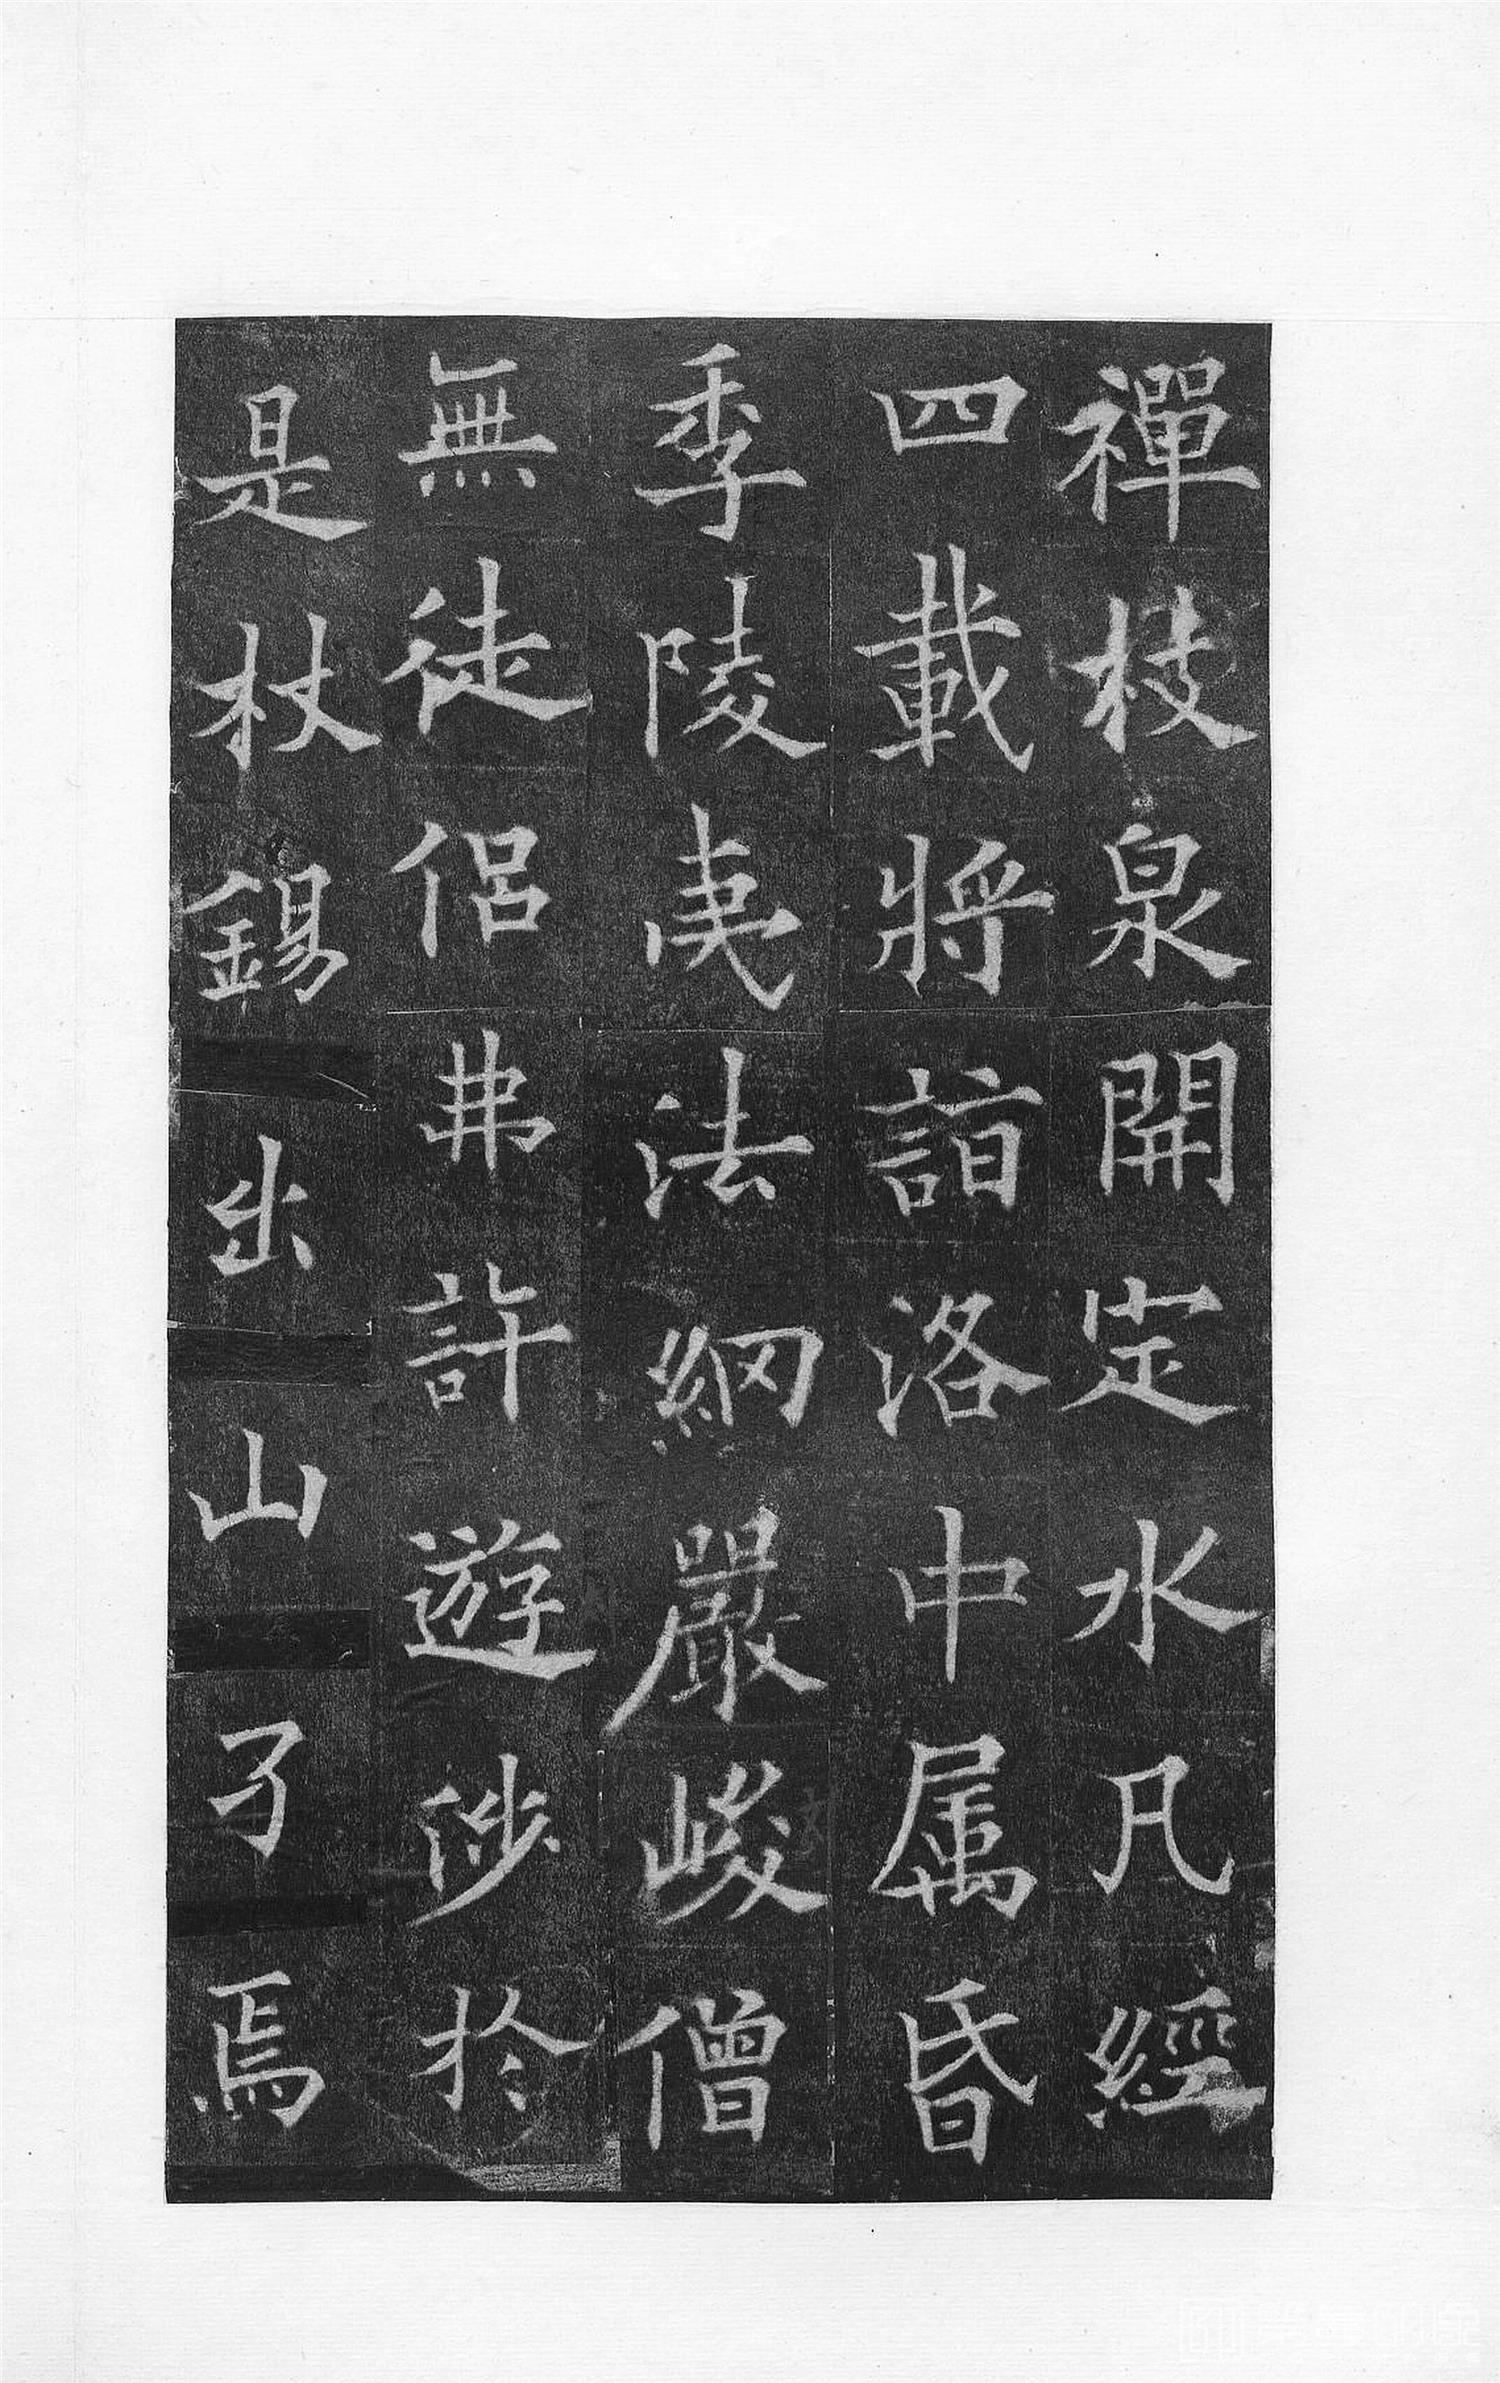 禪枝泉開定水凡經
四載將詣洛中属昏
季陵夷法網嚴峻僧
無徒侶弗許遊涉於
是杖錫出山孑焉